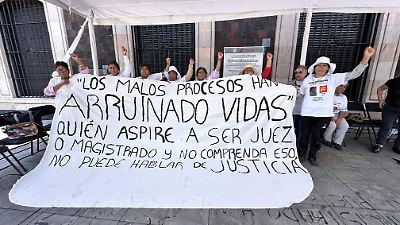 "LOS MALOS PROCESOS HAN
ARRUINADO VIDAS"
QUIÉN ASPIRE A SER JUEZ
O MAGISTRADO Y NO COMPRENDA ESO,
NO PUEDE HABLAR DE JUSTICIA